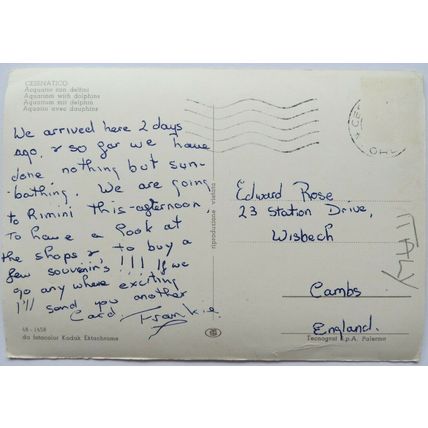 CESENATICO
Acquario con delfini
Aquarium with dolphins
Aquarium mit delphin
Aquario avec dauphins
We arrived here 2 days
ago, & so far we have
done nothing but sun-
bathing. We are going
to Rimini this-afternoon,
to have a look at
the shops & to buy a
few souvenir's !!! If we
go any where exciting
I'll send you another
Card Frankie.
48 - 1458
da fotocolor Kodak Ektachrome
Edward Rose
23 Station Drive,
Wisbech
Cambs
England.
ITALY
Tecnograf s.p.A. Palermo